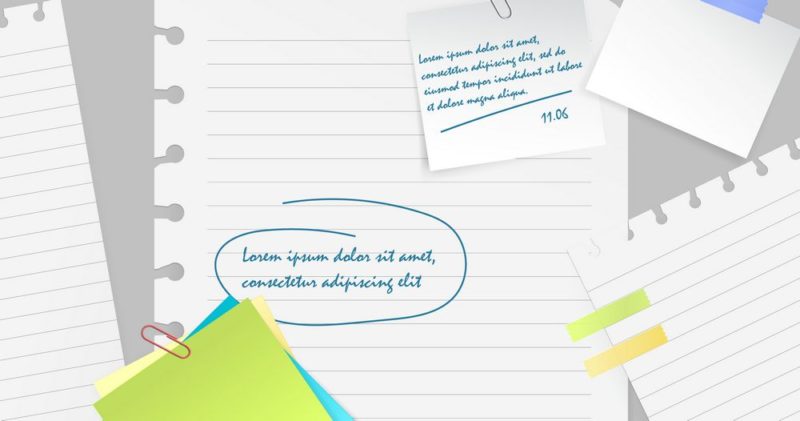 Lorem ipsum dolor sit amet,
consectetur adipiscing elit, sed do
eiusmod tempor incididunt ut labore
et dolore magna aliqua.
11.06
Lorem ipsum dolor sit amet,
consectetur adipiscing elit